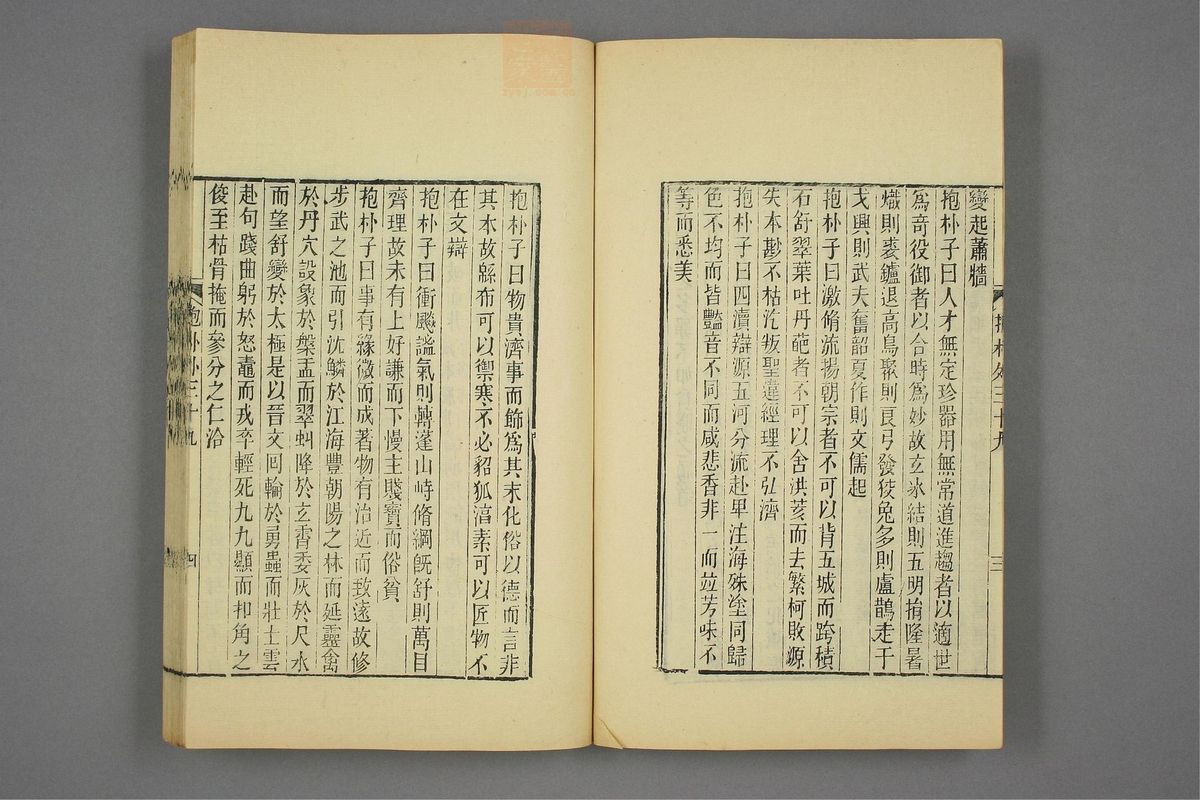 變起蕭牆
抱朴子曰人才無定珍器用無常道進趨者以適世
爲奇役御者以合時爲妙故玄氷結則五明捐隆暑
熾則裘鑪退高鳥聚則良弓發狡兔多則盧鵲走干
戈興則武夫奮韶夏作則文儒起
抱朴子曰激脩流揚朝宗者不可以背五城而跨積
石舒翠葉吐丹葩者不可以舍洪荄而去繁柯敗源
失本尠不枯汔叛聖違經理不弘濟
抱朴子曰四瀆辯源五河分流赴卑注海殊塗同歸
色不均而皆豔音不同而咸悲香非一而竝芳味不
等而悉美
抱朴外三十九
三
抱朴子曰物貴濟事而飾爲其末化俗以德而言非
其本故緜布可以禦寒不必貂狐淳素可以匠物不
在文辯
抱朴子曰衝飈謐氣則轉蓬山峙脩綱旣舒則萬目
齊理故未有上好謙而下慢主賤寶而俗貧
抱朴子曰事有緣微而成著物有治近而致遠故修
步武之池而引沈鱗於江海豐朝陽之林而延靈禽
於丹穴設象於槃盂而翠虯降於玄霄委灰於尺水
而望舒變於太極是以晉文囘輪於勇蟲而壯士雲
赴句踐曲躬於怒鼃而戎卒輕死九九顯而扣角之
俊至枯骨掩而參分之仁洽
抱朴外三十九
四